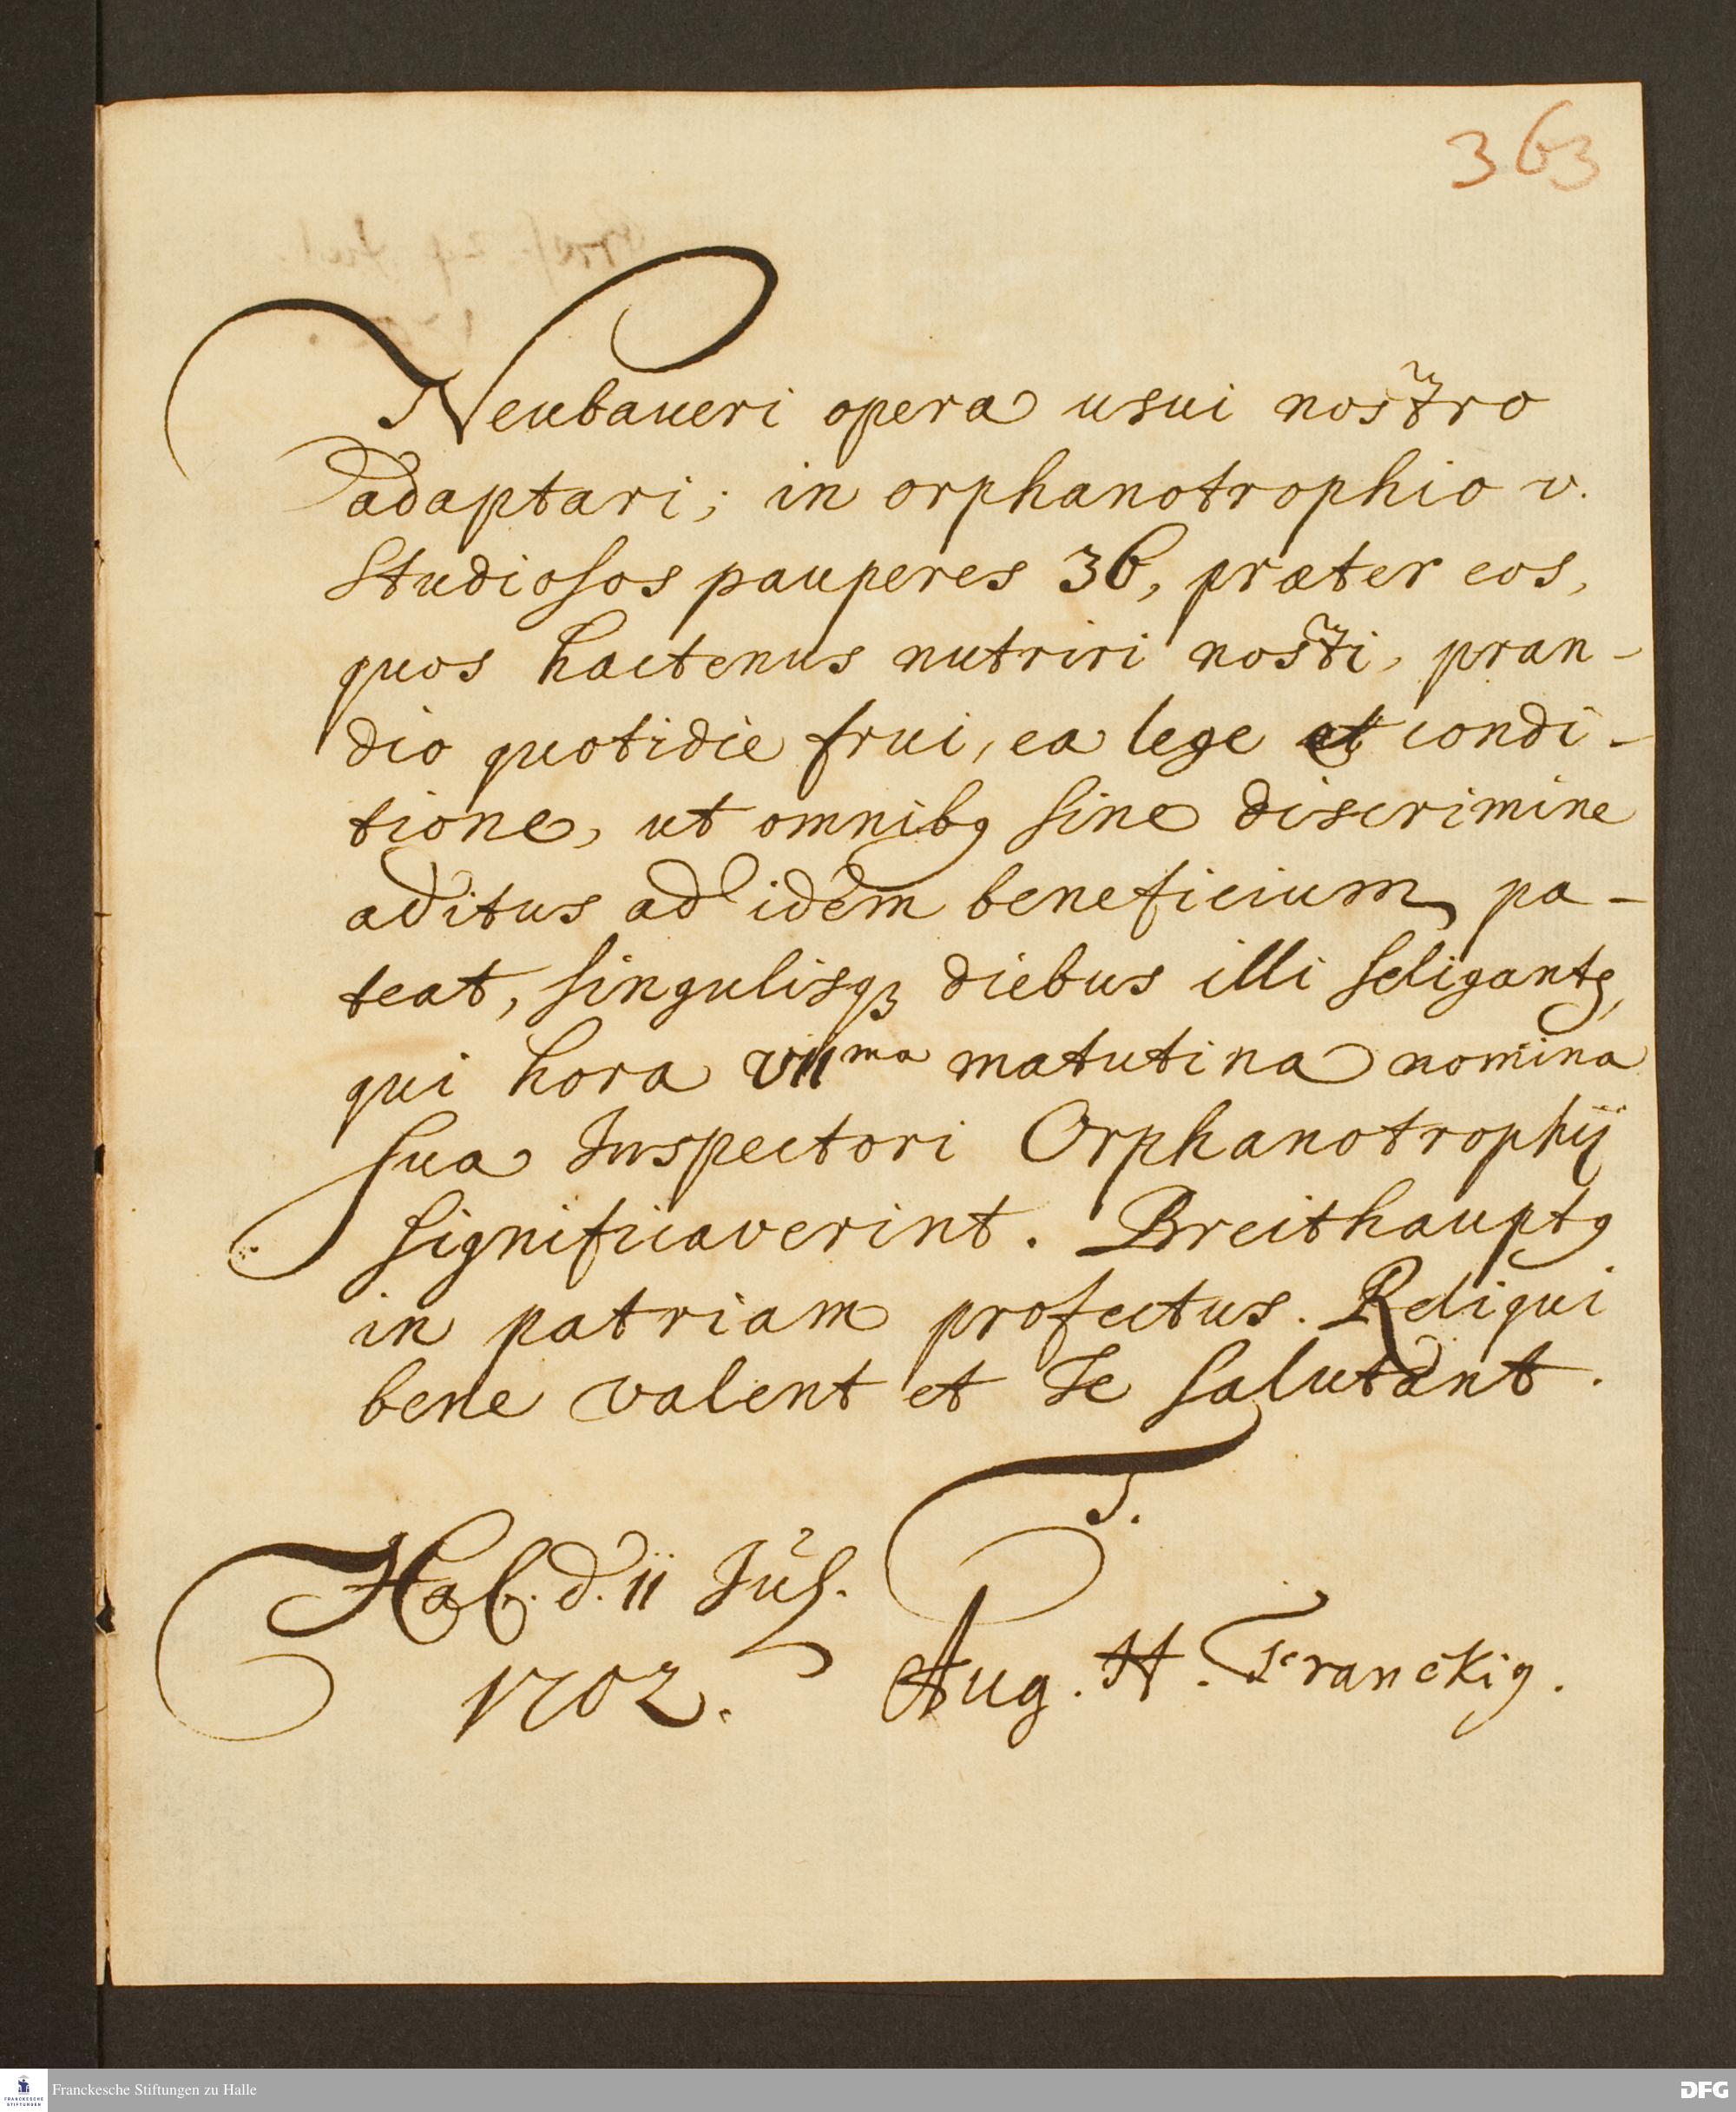 363
Neubaueri opera usui nostro
adaptari; in orphanotrophio v.
Studiosos pauperes 36, præter eos,
quos hactenus nutriri nosti, pran-
dio quotidie frui, ea lege et condi-
tione, ut omnibꝯ sine discrimine
aditus ad idem beneficium pa-
teat, singulisqꝫ diebus illi seligantꝛ,
qui hora VIIma matutina nomina
sua Inspectori Orphanotrophij
significaverint. Breithauptꝯ
in patriam profectus. Reliqui
bene valent et Te salutant.
T.
Hal. d. 11 Jul.
1702.
Aug. H. Franckiꝯ.
Franckesche Stiftungen zu Halle
FRANCKESCHE
STIFTUNGEN
DFG